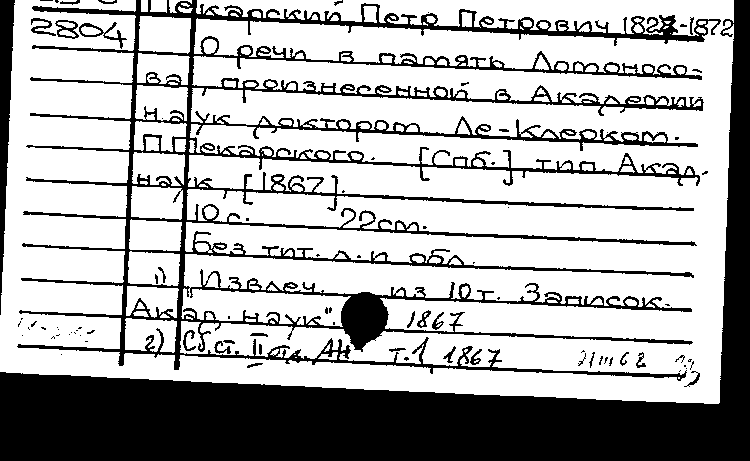 Пекарский, Петр Петрович, 1827-1872
2804 О речи в память Ломоносо-
ва, произнесенной в Академии
наук доктором Ле-Клерком.
П.Пекарского. [Спб.], тип. Акад.
наук, [1867].
10 с. 22см.
Без тит. л. и обл.
1) "Извлеч. из 10 т. Записок
Акад. наук". 1867
2) Сб. ст. II отд. АН т.1, 1867